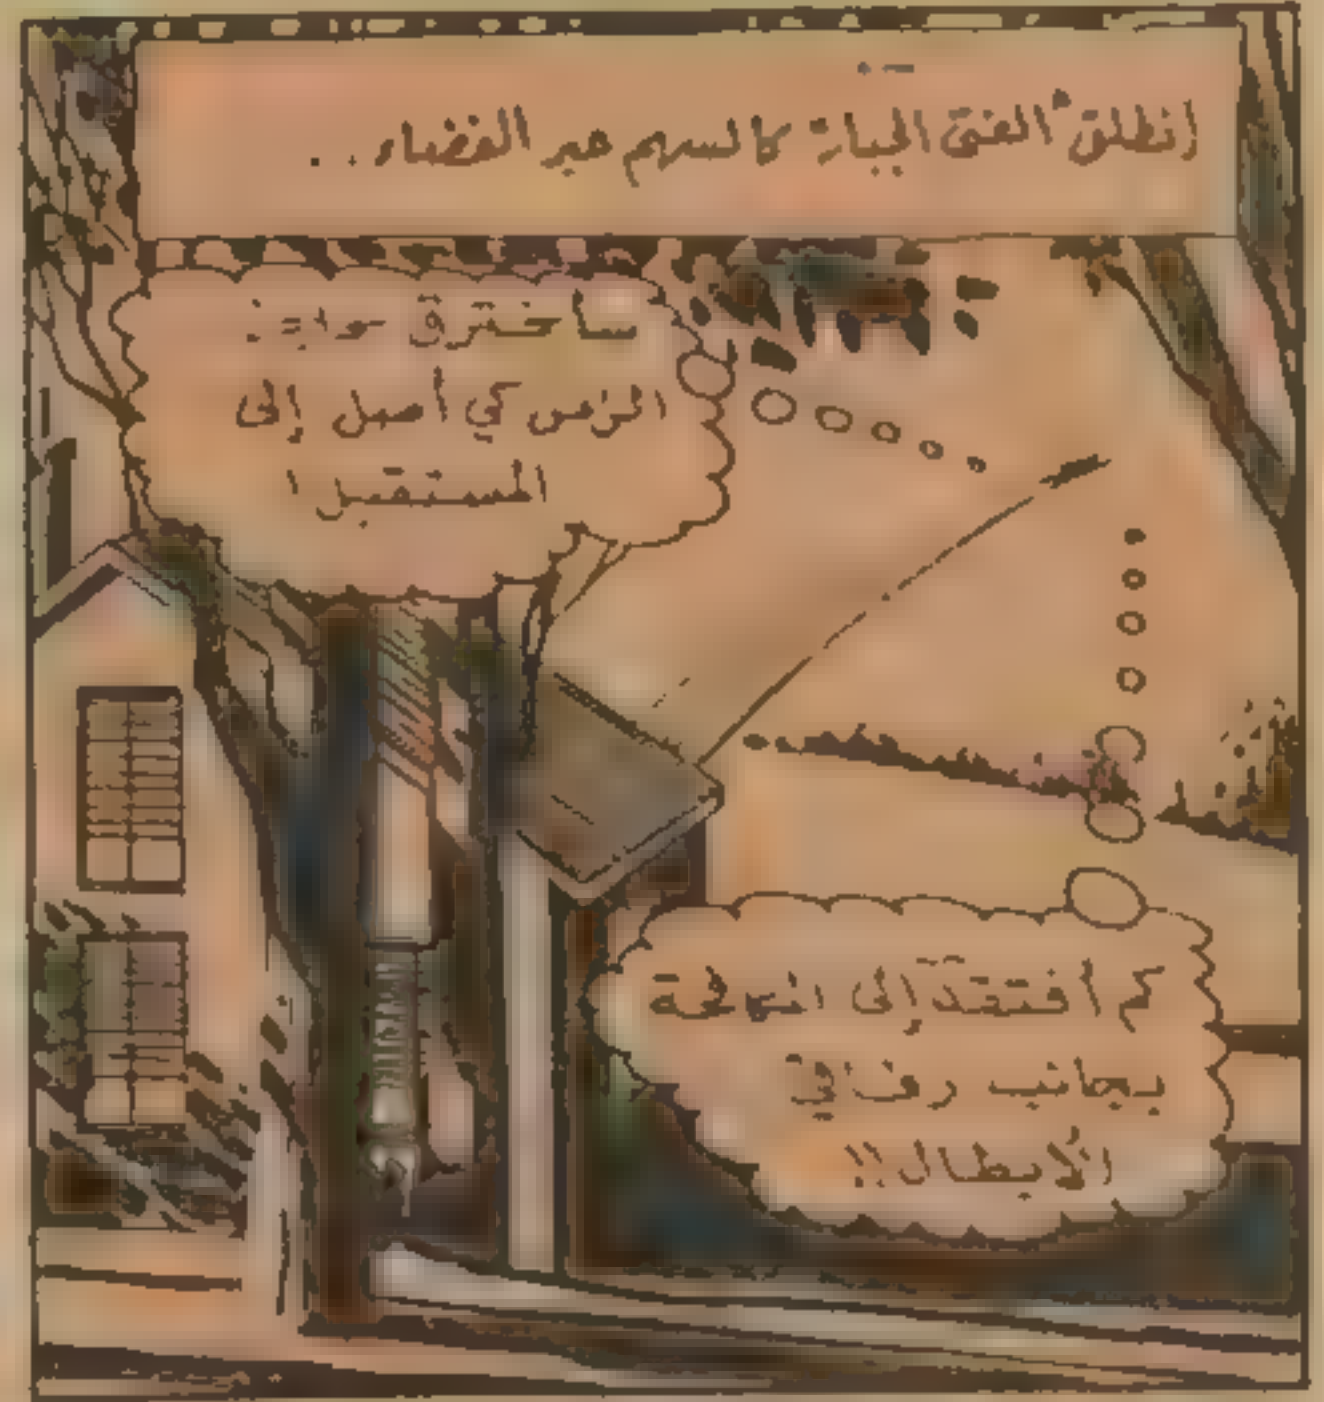 إنطلق الفتى الجبار كالسهم عبر الفضاء ..
سأخترق حواجز
الزمن كي أصل إلى
المستقبل !
كم أفتقد إلى المعرفة
بجانب رفاقي
الأبطال !!